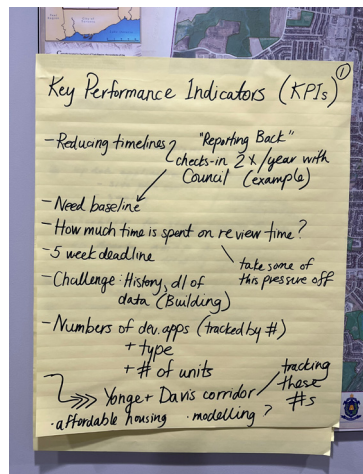 Key Performance Indicators (KPIs) 1
- Reducing timelines
"Reporting Back"
checks-in 2x/year with
Council (example)
- Need baseline
- How much time is spent on review time?
take some of
this pressure off
- 5 week deadline
- Challenge: History, dl of
data (Building)
- Numbers of dev. apps (tracked by #)
+ type
+ # of units
tracking
these
#s
Yonge + Davis corridor
· affordable housing · modelling ?